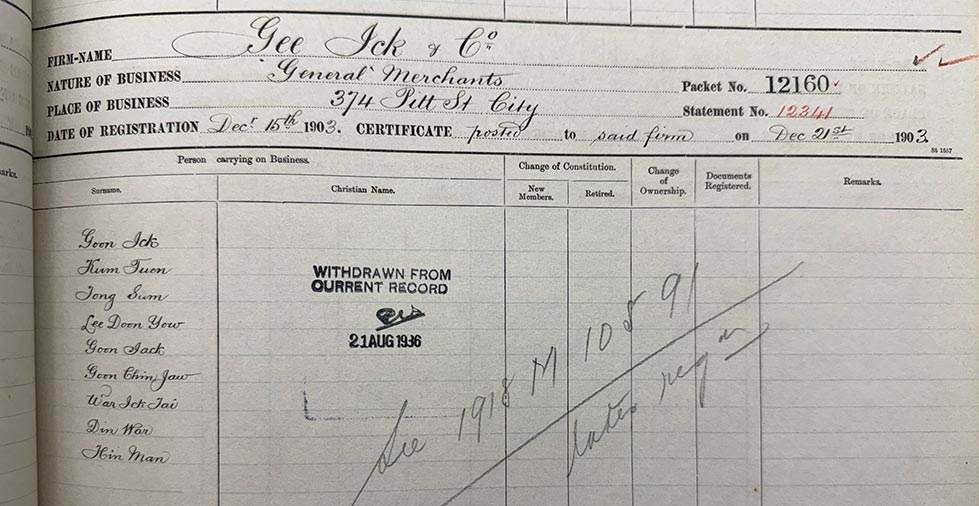 FIRM-NAME Gee Ick & Co.
NATURE OF BUSINESS "General" Merchants
Packet No. 12160
PLACE OF BUSINESS 374 Pitt St City
Statement No. 12341
DATE OF REGISTRATION Decr 15th 1903. CERTIFICATE posted to said firm on Dec 21st 1903
S8 1557
Person carrying on Business.
Change of Constitution.
Change of Ownership.
Documents Registered.
Remarks.
Surname.
Christian Name.
New Members.
Retired.
Goon Ick
Kum Tuen
Tong Sum
Lee Doon Yow
Goon Jack
Goon Chin Jaw
War Ick Tai
Din War
Hin Man
WITHDRAWN FROM
CURRENT RECORD
21 AUG 1936
See 1918 M 10 & 91
later regn